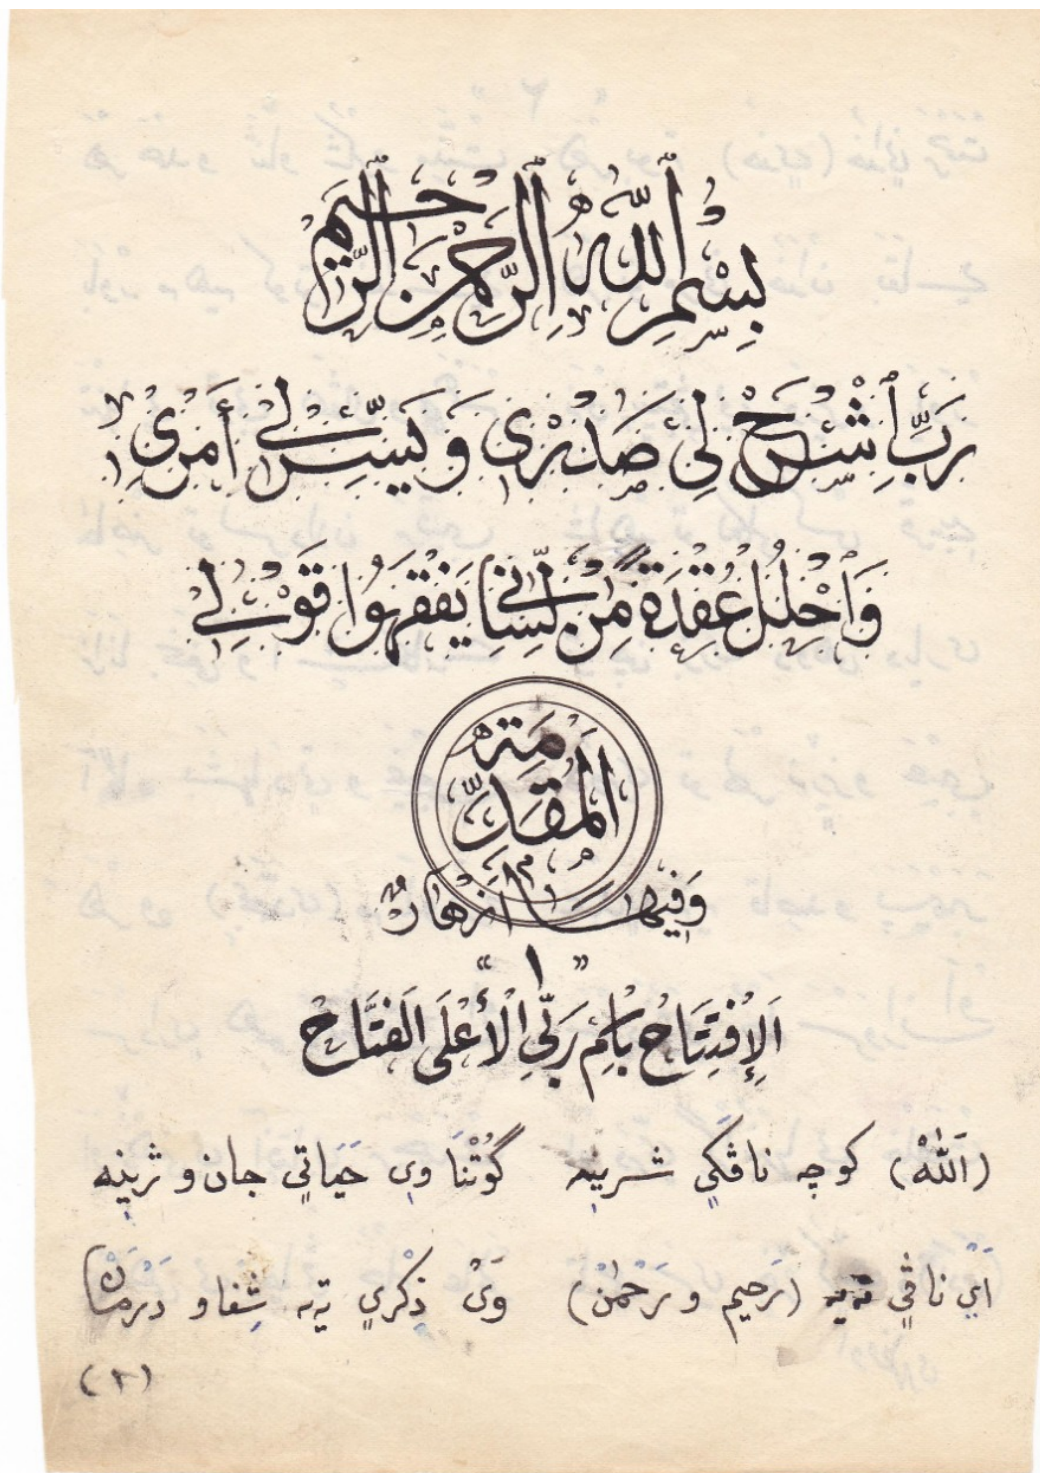 بِسْمِ ٱللَّهِ ٱلرَّحْمٰنِ ٱلرَّحِيمِ
رَبِّ ٱشْرَحْ لِى صَدْرِى وَيَسِّرْ لِى أَمْرِى
وَٱحْلُلْ عُقْدَةً مِّن لِّسَانِى يَفْقَهُوا قَوْلِى
اَلْمُقَدِّمَة
وَفِيهَا اَزْهَارٌ
« ١ »
اَلْإِفْتِتَاحُ بِاسْمِ رَبِّيَ الْأَعْلَى الفَتَّاحْ
(اَللّٰهْ) كوچه ناڤكىِ شرينِه گُوتْنَا وىِ حَيَاتىِ جان و ژرينِه
اَىْ ناڤىِ ته‌يه (رَحيم و رَحْمٰنْ) وَىْ ذِكْرىِ ته‌يه شِفا و دَرمَانْ
(٢)